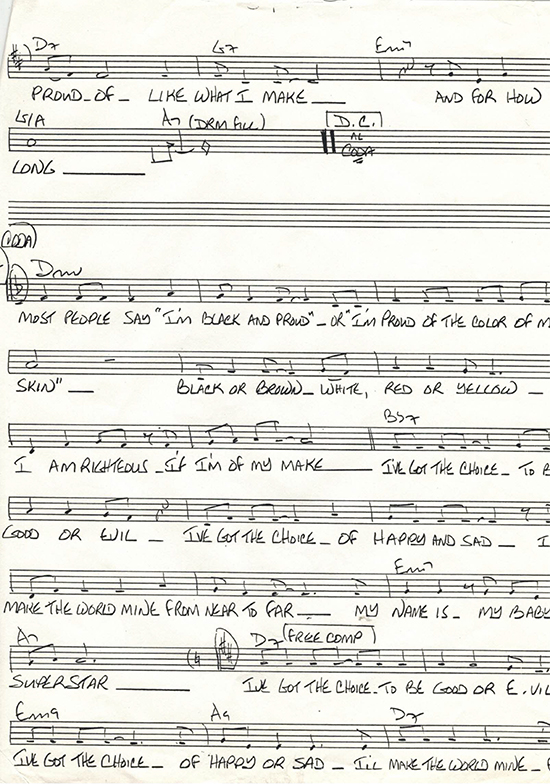 D7 G7 Em7
PROUD_OF_ LIKE WHAT I MAKE___ AND FOR HOW
G/A A7 (DRM FILL) D.C.
AL
CODA
LONG ________
CODA
Dm
MOST PEOPLE SAY "I'M BLACK AND PROUD"_ OR "I'M PROUD OF THE COLOR OF M
SKIN" __ BLACK OR BROWN_ WHITE, RED OR YELLOW _
Bb7
I AM RIGHTEOUS _IF I'M OF MY MAKE____ I'VE GOT THE CHOICE_ TO B
GOOD OR EVIL _ I'VE GOT THE CHOICE _ OF HAPPY AND SAD _ I
Em7
MAKE THE WORLD MINE FROM NEAR TO FAR___ MY NAME IS_ MY BABY
A7 D7 (FREE COMP)
SUPERSTAR ______ I'VE GOT THE CHOICE_TO BE GOOD OR E.VIL
Em9 A9 D7
I'VE GOT THE CHOICE_ OF HAPPY OR SAD _ I'LL MAKE THE WORLD MINE_